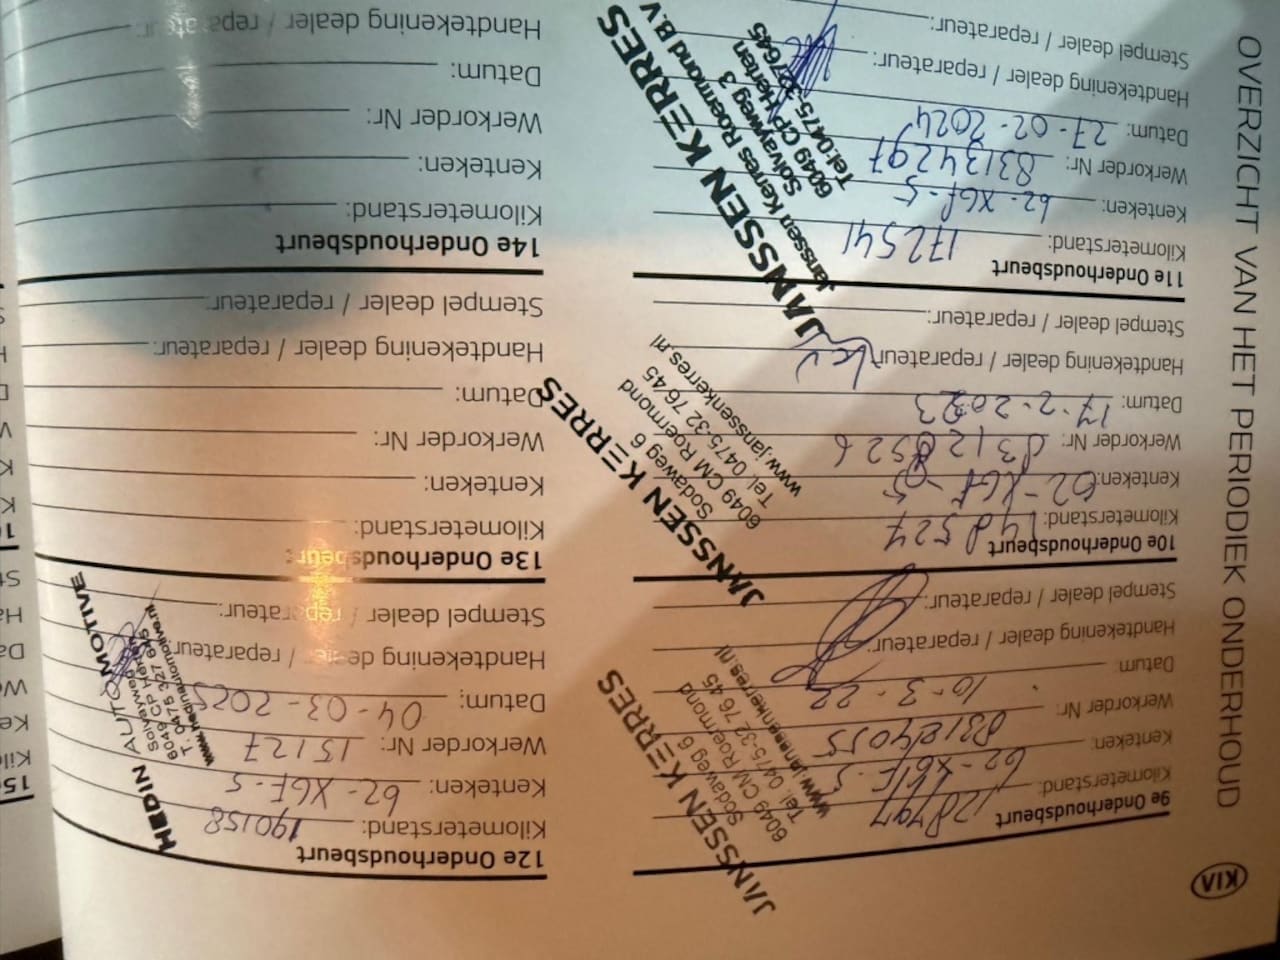 KIA
OVERZICHT VAN HET PERIODIEK ONDERHOUD
9e Onderhoudsbeurt
Kilometerstand: 128797
Kenteken: 62-XGF-5
Werkorder Nr: 83124055
Datum: 10-3-22
Handtekening dealer / reparateur:
Stempel dealer / reparateur:
JANSSEN KERRES
Sodaweg 6
6049 CM Roermond
Tel. 0475-32 76 45
www.janssenkerres.nl
10e Onderhoudsbeurt
Kilometerstand: 148527
Kenteken: 62-XGF-5
Werkorder Nr: 83128526
Datum: 17-2-2023
Handtekening dealer / reparateur:
Stempel dealer / reparateur:
JANSSEN KERRES
Sodaweg 6
6049 CM Roermond
Tel. 0475-32 76 45
www.janssenkerres.nl
11e Onderhoudsbeurt
Kilometerstand: 172541
Kenteken: 62-XGF-5
Werkorder Nr: 83134297
Datum: 27-02-2024
Handtekening dealer / reparateur:
Stempel dealer / reparateur:
JANSSEN KERRES
Janssen Kerres Roermond B.V
Solvayweg 3
6049 CP Herten
Tel.0475-327645
12e Onderhoudsbeurt
Kilometerstand: 190158
Kenteken: 62-XGF-5
Werkorder Nr: 15127
Datum: 04-03-2025
Handtekening dealer / reparateur:
Stempel dealer / reparateur:
HEDIN AUTOMOTIVE
Solvayweg
6049 CP Herten
T. 0475 327 645
www.hedinautomotive.nl
13e Onderhoudsbeurt
Kilometerstand:
Kenteken:
Werkorder Nr:
Datum:
Handtekening dealer / reparateur:
Stempel dealer / reparateur:
14e Onderhoudsbeurt
Kilometerstand:
Kenteken:
Werkorder Nr:
Datum:
Handtekening dealer / reparateur: